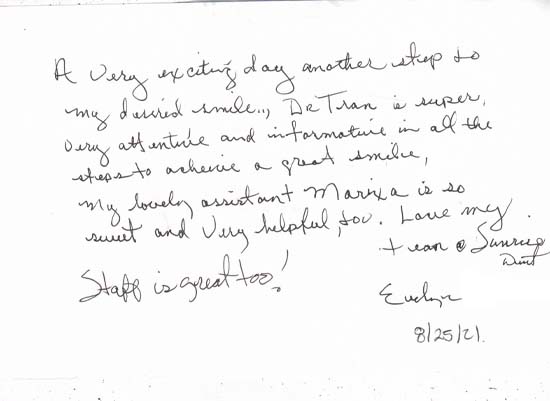 A Very exciting day another step to
my desired smile.., Dr Tran is super,
Very attentive and informative in all the
steps to acheive a great smilie,
My lovely assistant Marixa is so
sweet and Very helpful, too. Love my
team @ Sunrise
Dent
Staff is great too!
Evelyn
8/25/21.